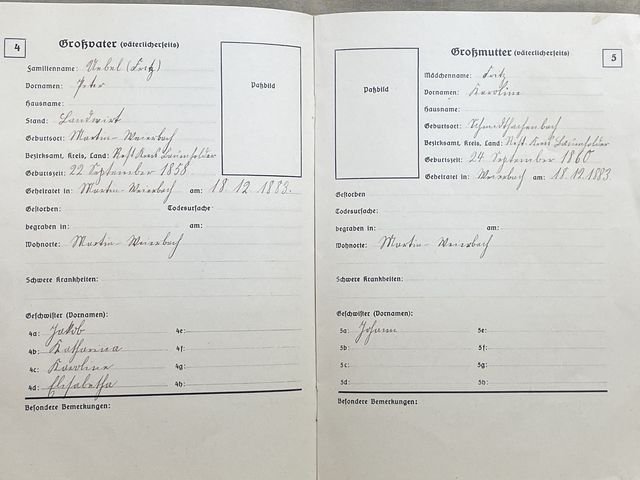 4
Großvater (väterlicherseits)
Familienname: Uebel (Fritz)
Vornamen: Peter
Hausname:
Stand: Landwirt
Geburtsort: Martin-Weierbach
Bezirksamt, Kreis, Land: Rest Kreis Baumholder
Geburtszeit: 22 September 1858
Geheiratet in: Martin-Weierbach am: 18.12.1883.
Gestorben: Todesursache:
begraben in: am:
Wohnorte: Martin-Weierbach
Schwere Krankheiten:
Geschwister (Vornamen):
4a: Jakob 4e:
4b: Katharina 4f:
4c: Karoline 4g:
4d: Elisabetha 4h:
Besondere Bemerkungen:
Paßbild
5
Großmutter (väterlicherseits)
Mädchenname: Fritz
Vornamen: Karoline
Hausname:
Geburtsort: Schmidthachenbach
Bezirksamt, Kreis, Land: Rest. Kreis Baumholder
Geburtszeit: 24 September 1860
Geheiratet in: Weierbach am: 18.12.1883.
Paßbild
Gestorben
Todesursache:
begraben in: am:
Wohnorte: Martin-Weierbach
Schwere Krankheiten:
Geschwister (Vornamen):
5a Johann 5e:
5b: 5f:
5c: 5g:
5d: 5h:
Besondere Bemerkungen: